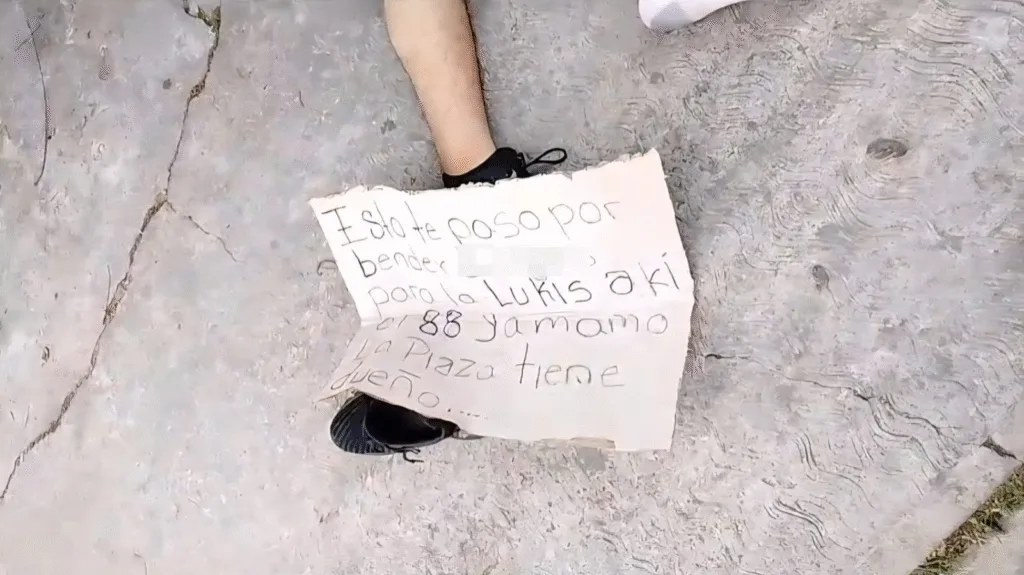 Esto te poso por
bender
para la LUKIS akí
el 88 yamamo
La Plaza tiene
dueño....